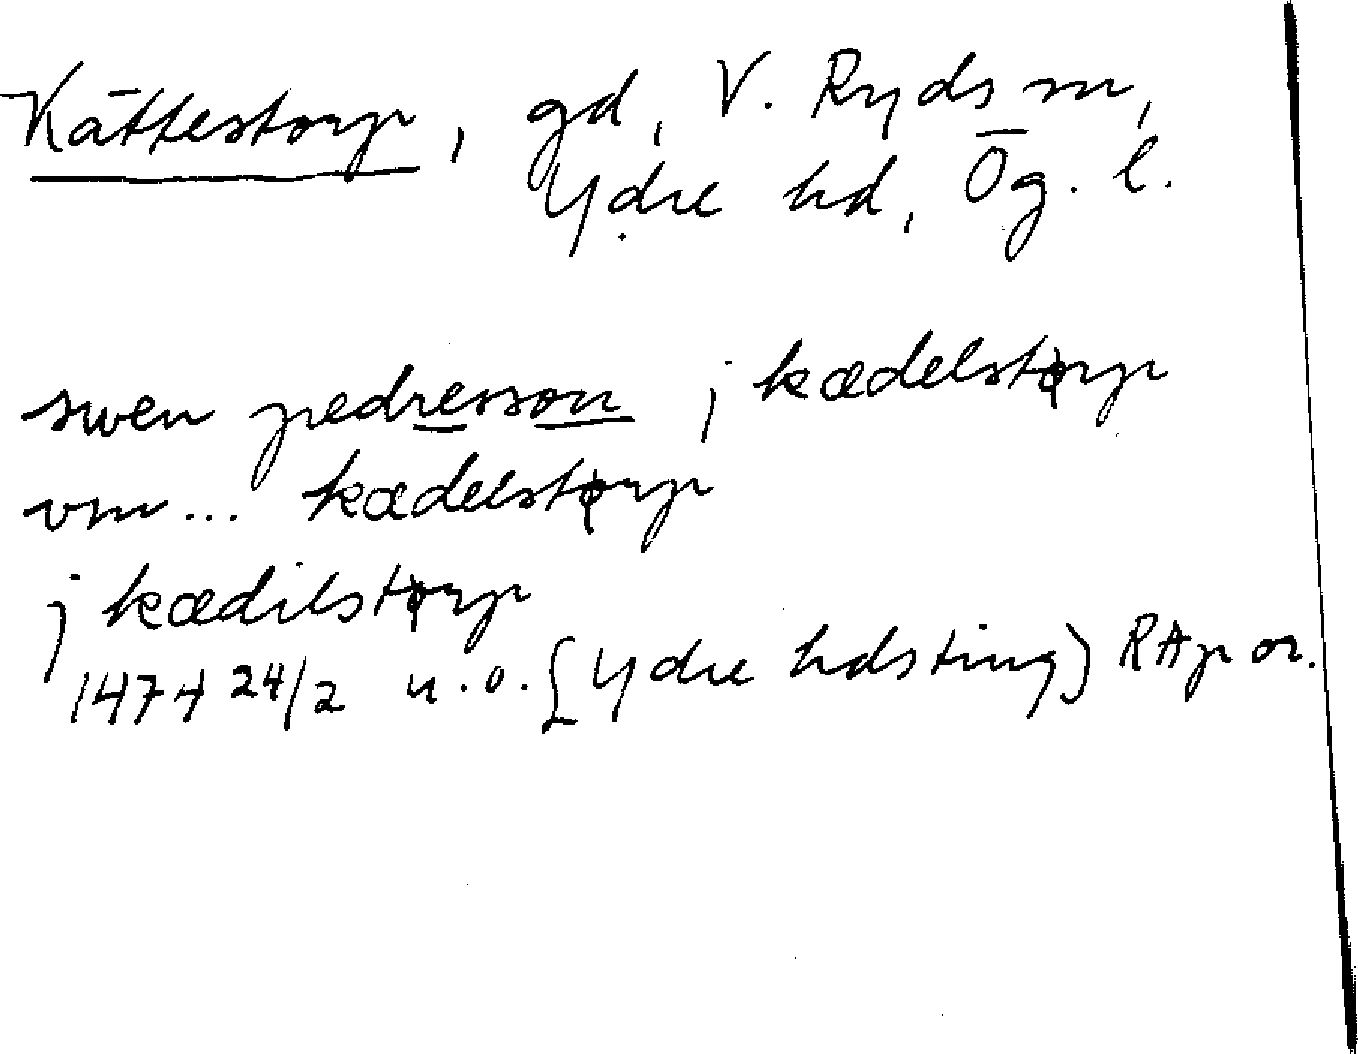 Kättestorp, gd, V. Ryds sn,
Ydre hd, Ög. l.
swen pedresson j kædelstørp
vm... kædelstørp
j kædilstørp
1474 24/2 u.o. [Ydre hdsting] RAp or.